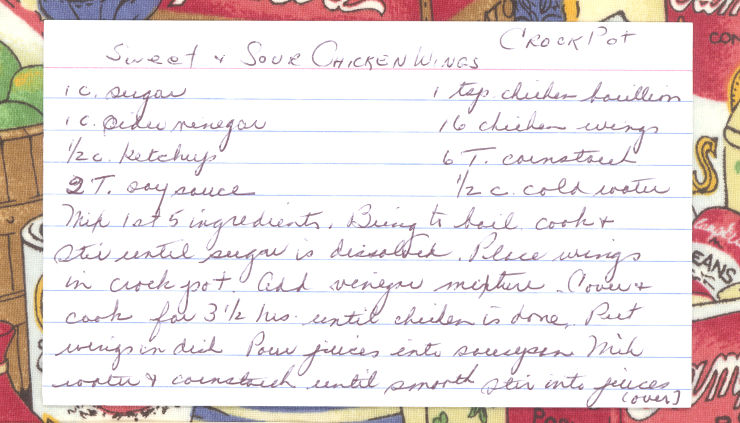 CROCK POT
SWEET & SOUR CHICKEN WINGS
1 c. sugar
1 c. cider vinegar
1/2 c. ketchup
2 T. soy sauce
1 tsp. chicken bouillion
16 chicken wings
6 T. cornstarch
1/2 c. cold water
Mix 1st 5 ingredients. Bring to boil. cook &
stir until sugar is dissolved. Place wings
in crock pot. Add vinegar mixture. Cover &
cook for 3 1/2 hrs. until chicken is done. Put
wings in dish Pour juices into saucepan Mix
water & cornstarch until smooth stir into juices
(over)
CON
S
EANS